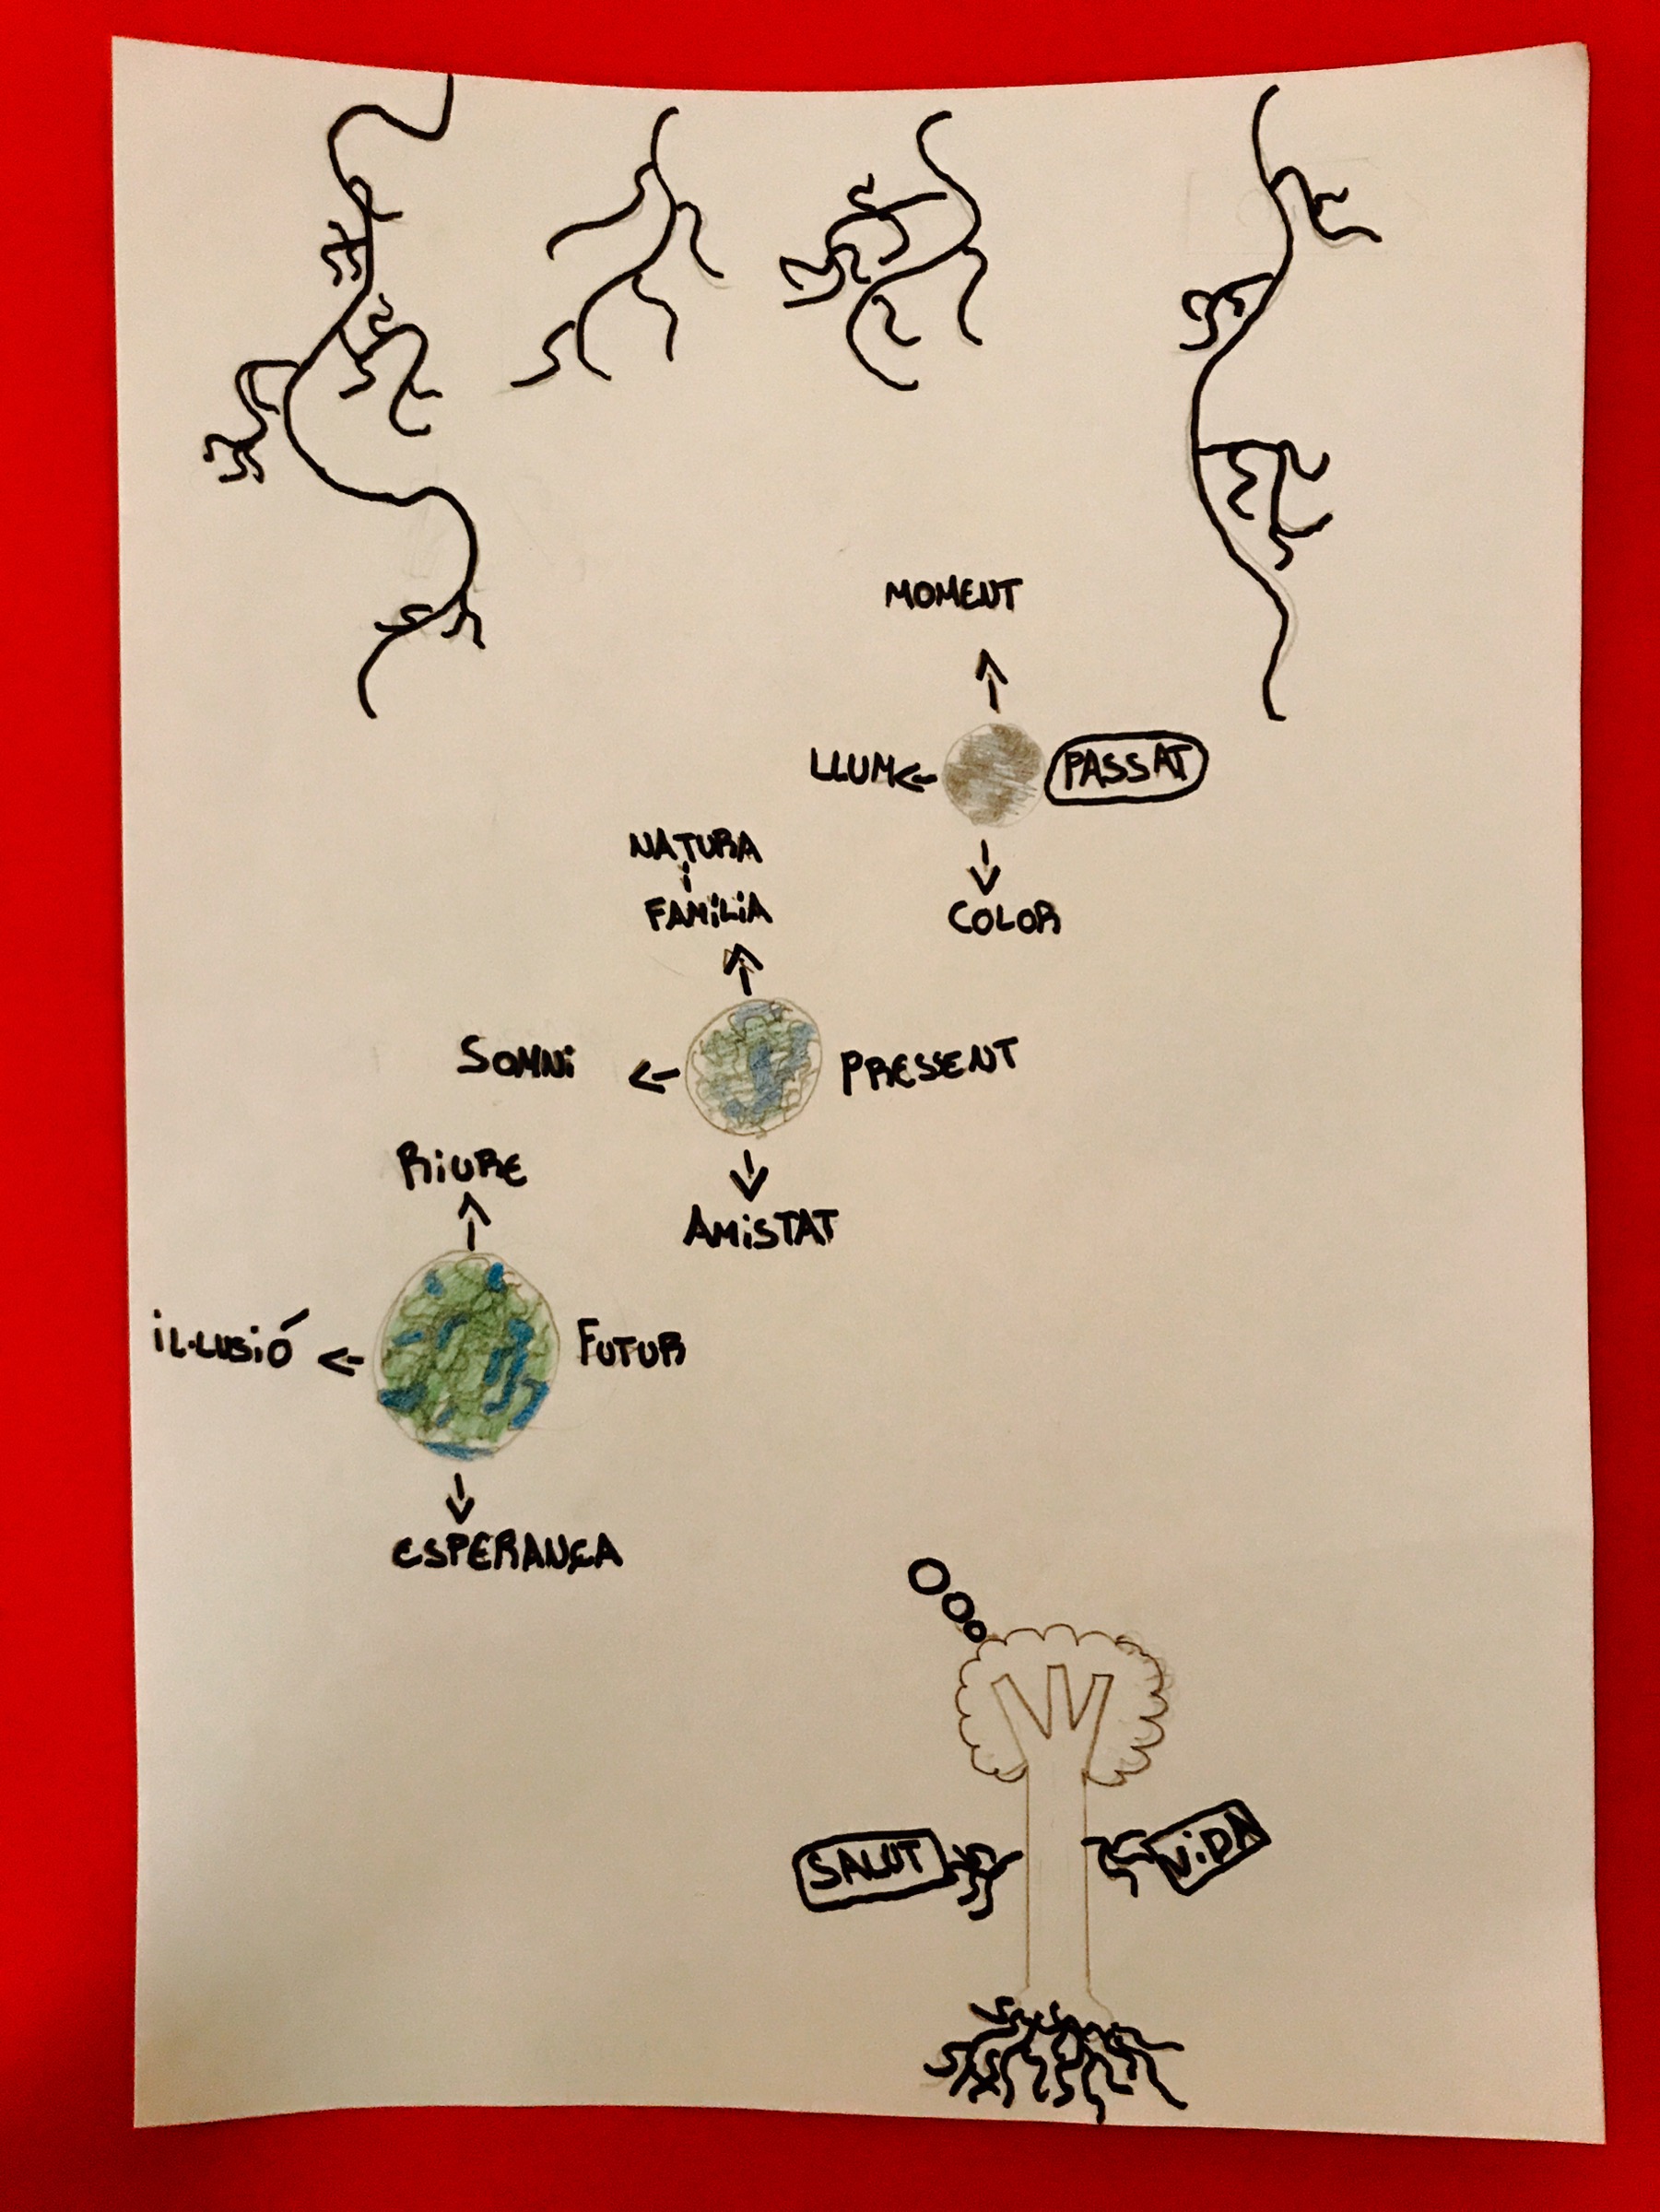 MOMENT
LLUM
PASSAT
COLOR
NATURA
i
FAMiLiA
SOMNi
PRESENT
AMiSTAT
RiURE
iL·LUSiÓ
FUTUR
ESPERANÇA
SALUT
ViDA